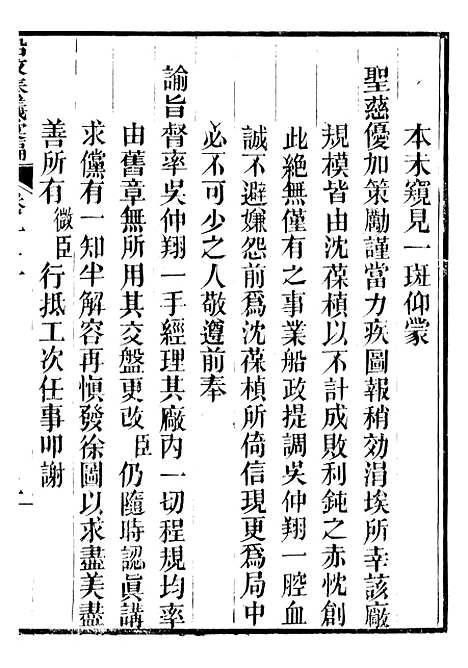 本末窺見一斑仰蒙
聖慈優加策勵謹當力疾圖報稍効涓埃所幸該廠
規模皆由沈葆楨以不計成敗利鈍之赤忱創
此絶無僅有之事業船政提調吳仲翔一腔血
誠不避嫌怨前爲沈葆楨所倚信現更爲局中
必不可少之人敬遵前奉
諭旨督率吳仲翔一手經理其廠內一切程規均率
由舊章無所用其交盤更改臣仍隨時認眞講
求儻有一知半解容再愼發徐圖以求盡美盡
善所有微臣行抵工次任事叩謝
船政奏議彙編